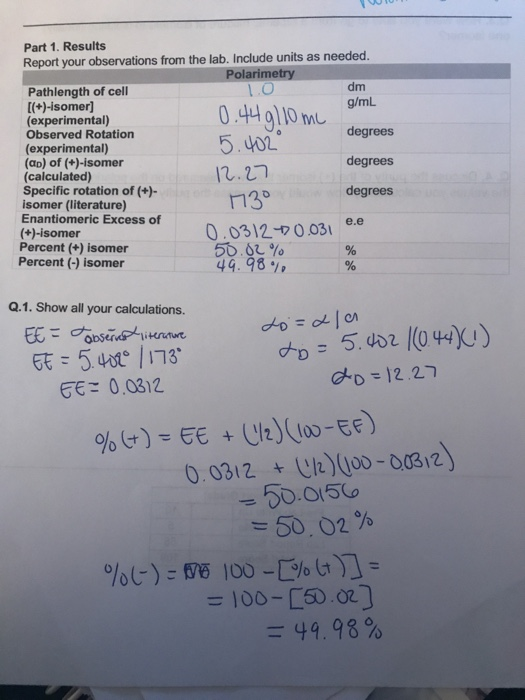 Part 1. Results
Report your observations from the lab. Include units as needed.
Polarimetry
Pathlength of cell 1.0 dm
[(+)-isomer] (experimental) 0.44g/10mL g/mL
Observed Rotation (experimental) 5.402° degrees
(αD) of (+)-isomer (calculated) 12.27 degrees
Specific rotation of (+)-isomer (literature) 173° degrees
Enantiomeric Excess of (+)-isomer 0.0312→0.031 e.e
Percent (+) isomer 50.02 % %
Percent (-) isomer 49.98 % %
Q.1. Show all your calculations.
EE = αobserved/αliterature
EE = 5.402° / 173°
EE = 0.0312
αD = α/cl
αD = 5.402 /(0.44)(1)
αD = 12.27
%(+) = EE + (1/2)(100-EE)
0.0312 + (1/2)(100-0.0312)
= 50.0156
= 50.02%
%(-) = 100 - [%(+)] =
= 100 - [50.02]
= 49.98%